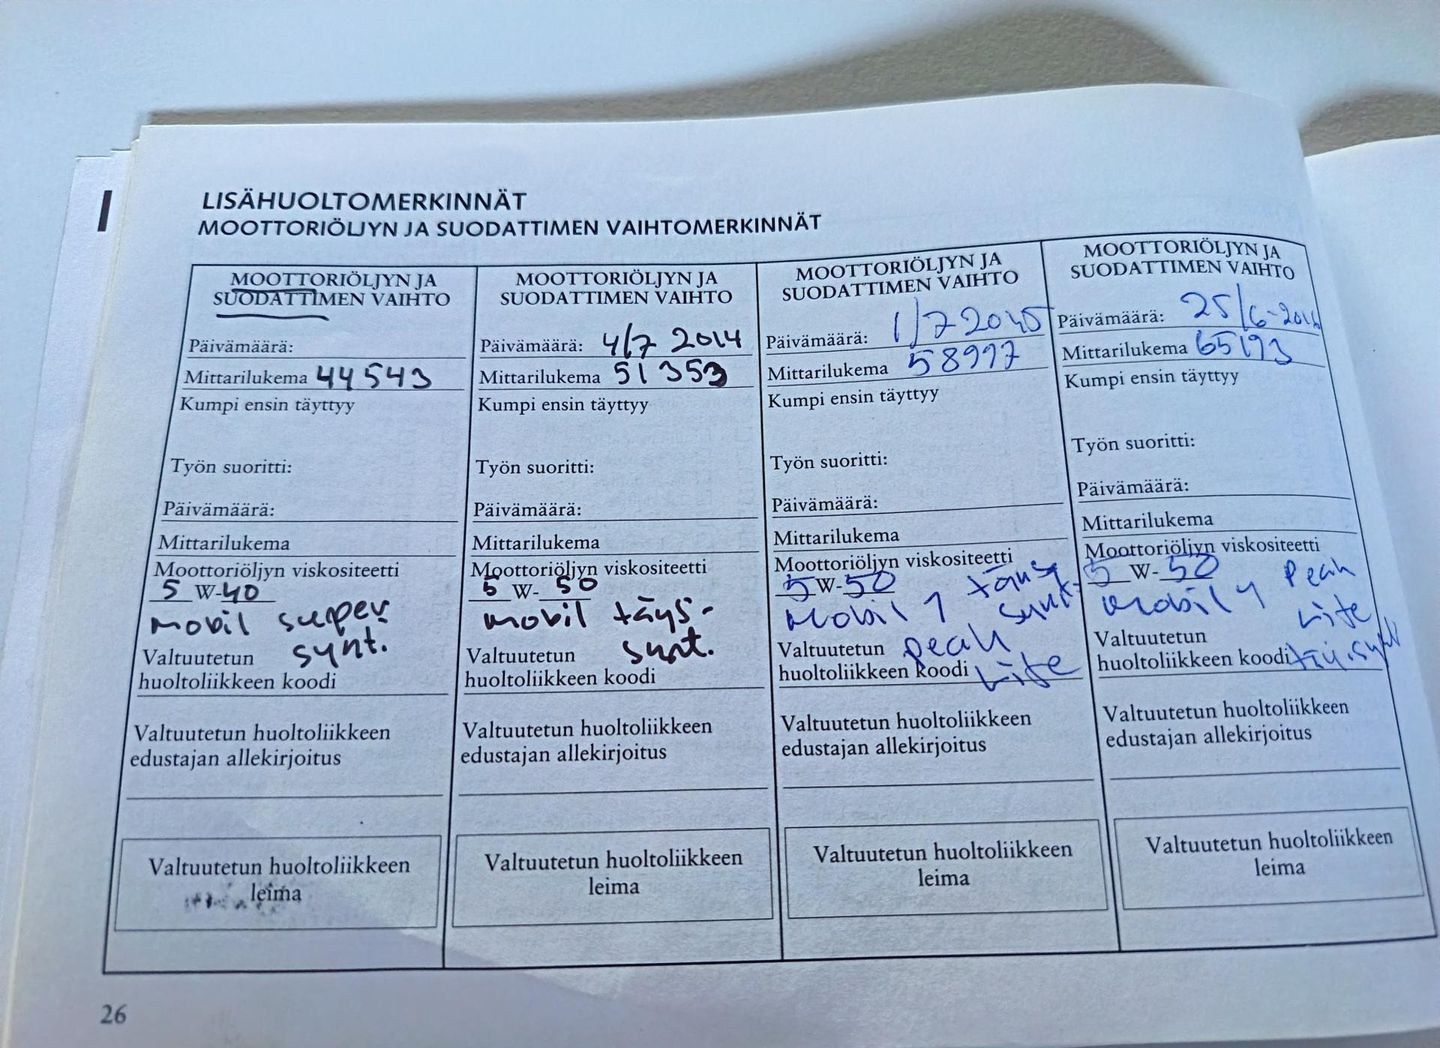 LISÄHUOLTOMERKINNÄT
MOOTTORIÖLJYN JA SUODATTIMEN VAIHTOMERKINNÄT
MOOTTORIÖLJYN JA
SUODATTIMEN VAIHTO
Päivämäärä:
Mittarilukema 44543
Kumpi ensin täyttyy
Työn suoritti:
Päivämäärä:
Mittarilukema
Moottoriöljyn viskositeetti
5 W-40
mobil super
synt.
Valtuutetun
huoltoliikkeen koodi
Valtuutetun huoltoliikkeen
edustajan allekirjoitus
Valtuutetun huoltoliikkeen
leima
MOOTTORIÖLJYN JA
SUODATTIMEN VAIHTO
Päivämäärä: 4/7 2014
Mittarilukema 51353
Kumpi ensin täyttyy
Työn suoritti:
Päivämäärä:
Mittarilukema
Moottoriöljyn viskositeetti
5 W-50
mobil täys-
synt.
Valtuutetun
huoltoliikkeen koodi
Valtuutetun huoltoliikkeen
edustajan allekirjoitus
Valtuutetun huoltoliikkeen
leima
MOOTTORIÖLJYN JA
SUODATTIMEN VAIHTO
Päivämäärä: 1/7
Mittarilukema
Kumpi ensin täyttyy
Työn suoritti:
Päivämäärä:
Mittarilukema
Moottoriöljyn viskositeetti
5 W-50 täys
mobil 1 synt.
Valtuutetun peak
huoltoliikkeen koodi life
Valtuutetun huoltoliikkeen
edustajan allekirjoitus
Valtuutetun huoltoliikkeen
leima
MOOTTORIÖLJYN JA
SUODATTIMEN VAIHTO
Päivämäärä: 25/6-2016
Mittarilukema 65193
Kumpi ensin täyttyy
Työn suoritti:
Päivämäärä:
Mittarilukema
Moottoriöljyn viskositeetti
5 W-50 Peak
mobil 1 life
Valtuutetun
huoltoliikkeen koodi
Valtuutetun huoltoliikkeen
edustajan allekirjoitus
Valtuutetun huoltoliikkeen
leima
26